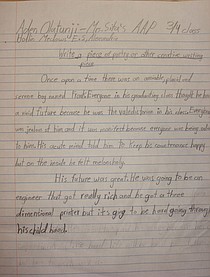 Aden Olatunji - Mrs. Silva's AAP 3/4 class
Write a piece of poetry or other creative writing
piece
Once upon a time there was an amiable, placid and
serene boy named Aden. Everyone in his graduating class thought he had
a vivid future because he was the valedictorian in his class. Everyone
was jealous of him and it was manifest because everyone was being rude
to him. His acute mind told him to keep his countenance happy
but on the inside he felt melancholy.
His future was great. He was going to be an
engineer that got really rich and he got a three
dimensional printer but it's going to be hard going through
his child hood.